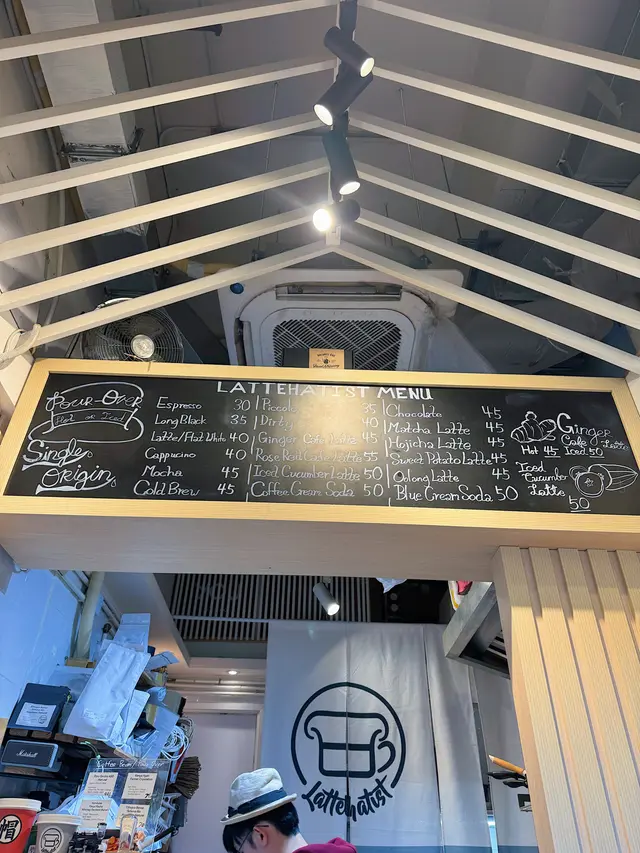 LATTEHATIST MENU
Pour-Over
Hot or Iced
Single
Origin
Espresso 30
Long Black 35
Latte/Flat White 40
Cappucino 40
Mocha 45
Cold Brew 45
Piccolo 35
Dirty 40
Ginger Cafe Latte 45
Rose Roll Cafe Latte 55
Iced Cucumber Latte 50
Coffee Cream Soda 50
Chocolate 45
Matcha Latte 45
Hojicha Latte 45
Sweet Potato Latte 45
Oolong Latte 45
Blue Cream Soda 50
Ginger
Cafe Latte
Hot 45 Iced 50
Iced
Cucumber
Latte
50
Marshall
Lattehatist
帽